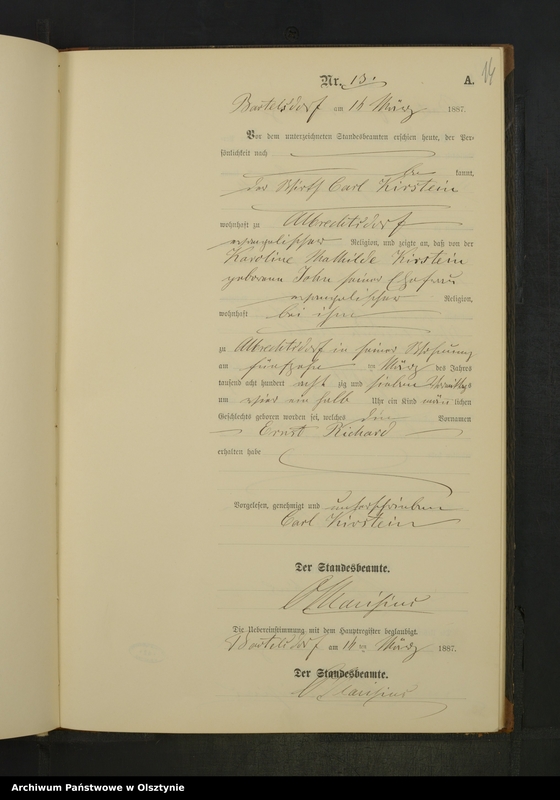 14
Nr. 13. A.
Bartelsdorf am 16 März 1887.
Vor dem unterzeichneten Standesbeamten erschien heute, der Per-
sönlichkeit nach
be kannt,
der Wirth Carl Kirstein
wohnhaft zu Albrechtsdorf
evangelischer Religion, und zeigte an, daß von der
Karoline Mathilde Kirstein
geborenen John seiner Ehefrau
evangelischer Religion,
wohnhaft bei ihm
zu Albrechtsdorf in seiner Wohnung
am fünfzehn ten März des Jahres
tausend acht hundert acht zig und sieben Vormittags
um vier ein halb Uhr ein Kind män lichen
Geschlechts geboren worden sei, welches die Vornamen
Ernst Richard
erhalten habe
Vorgelesen, genehmigt und unterschrieben
Carl Kirstein
Der Standesbeamte.
Die Uebereinstimmung mit dem Hauptregister beglaubigt.
Bartelsdorf am 16 ten März 1887.
Der Standesbeamte.
Archiwum Państwowe w Olsztynie